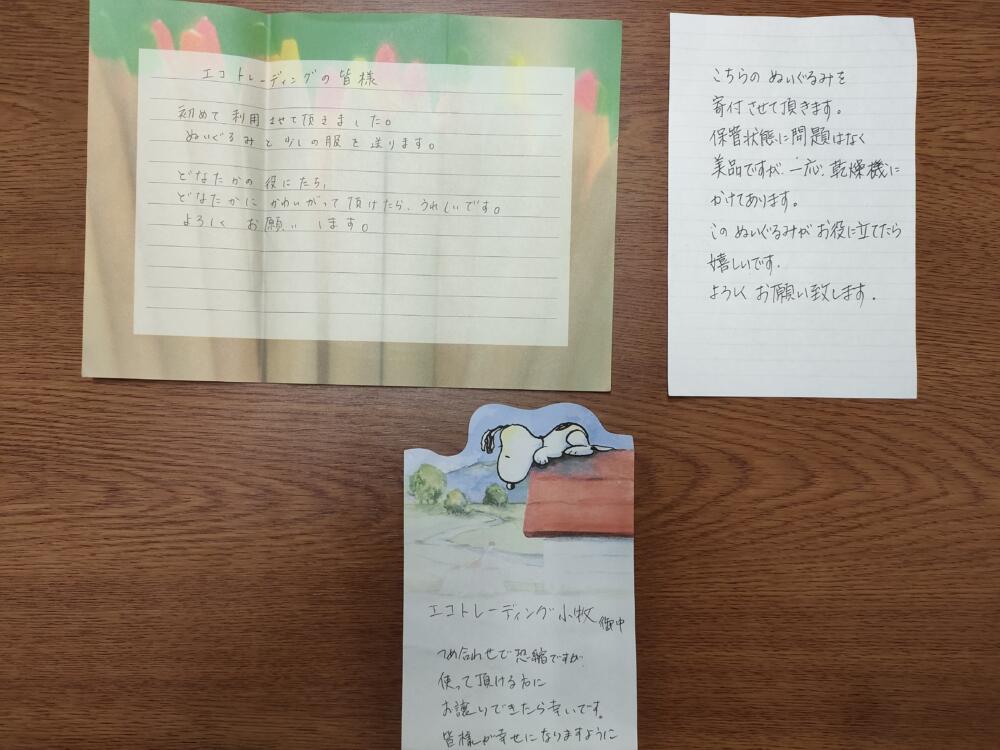 エコトレーディングの皆様
初めて利用させて頂きました。
ぬいぐるみと少しの服を送ります。
どなたかの役にたち、
どなたかにかわいがって頂けたら、うれしいです。
よろしくお願いします。
こちらのぬいぐるみを
寄付させて頂きます。
保管状態に問題はなく
美品ですが、一応、乾燥機に
かけてあります。
このぬいぐるみがお役に立てたら
嬉しいです.
よろしくお願い致します.
エコトレーディング小牧 御中
つめ合わせで恐縮ですが
使って頂ける方に
お譲りできたら幸いです。
皆様が幸せになりますように